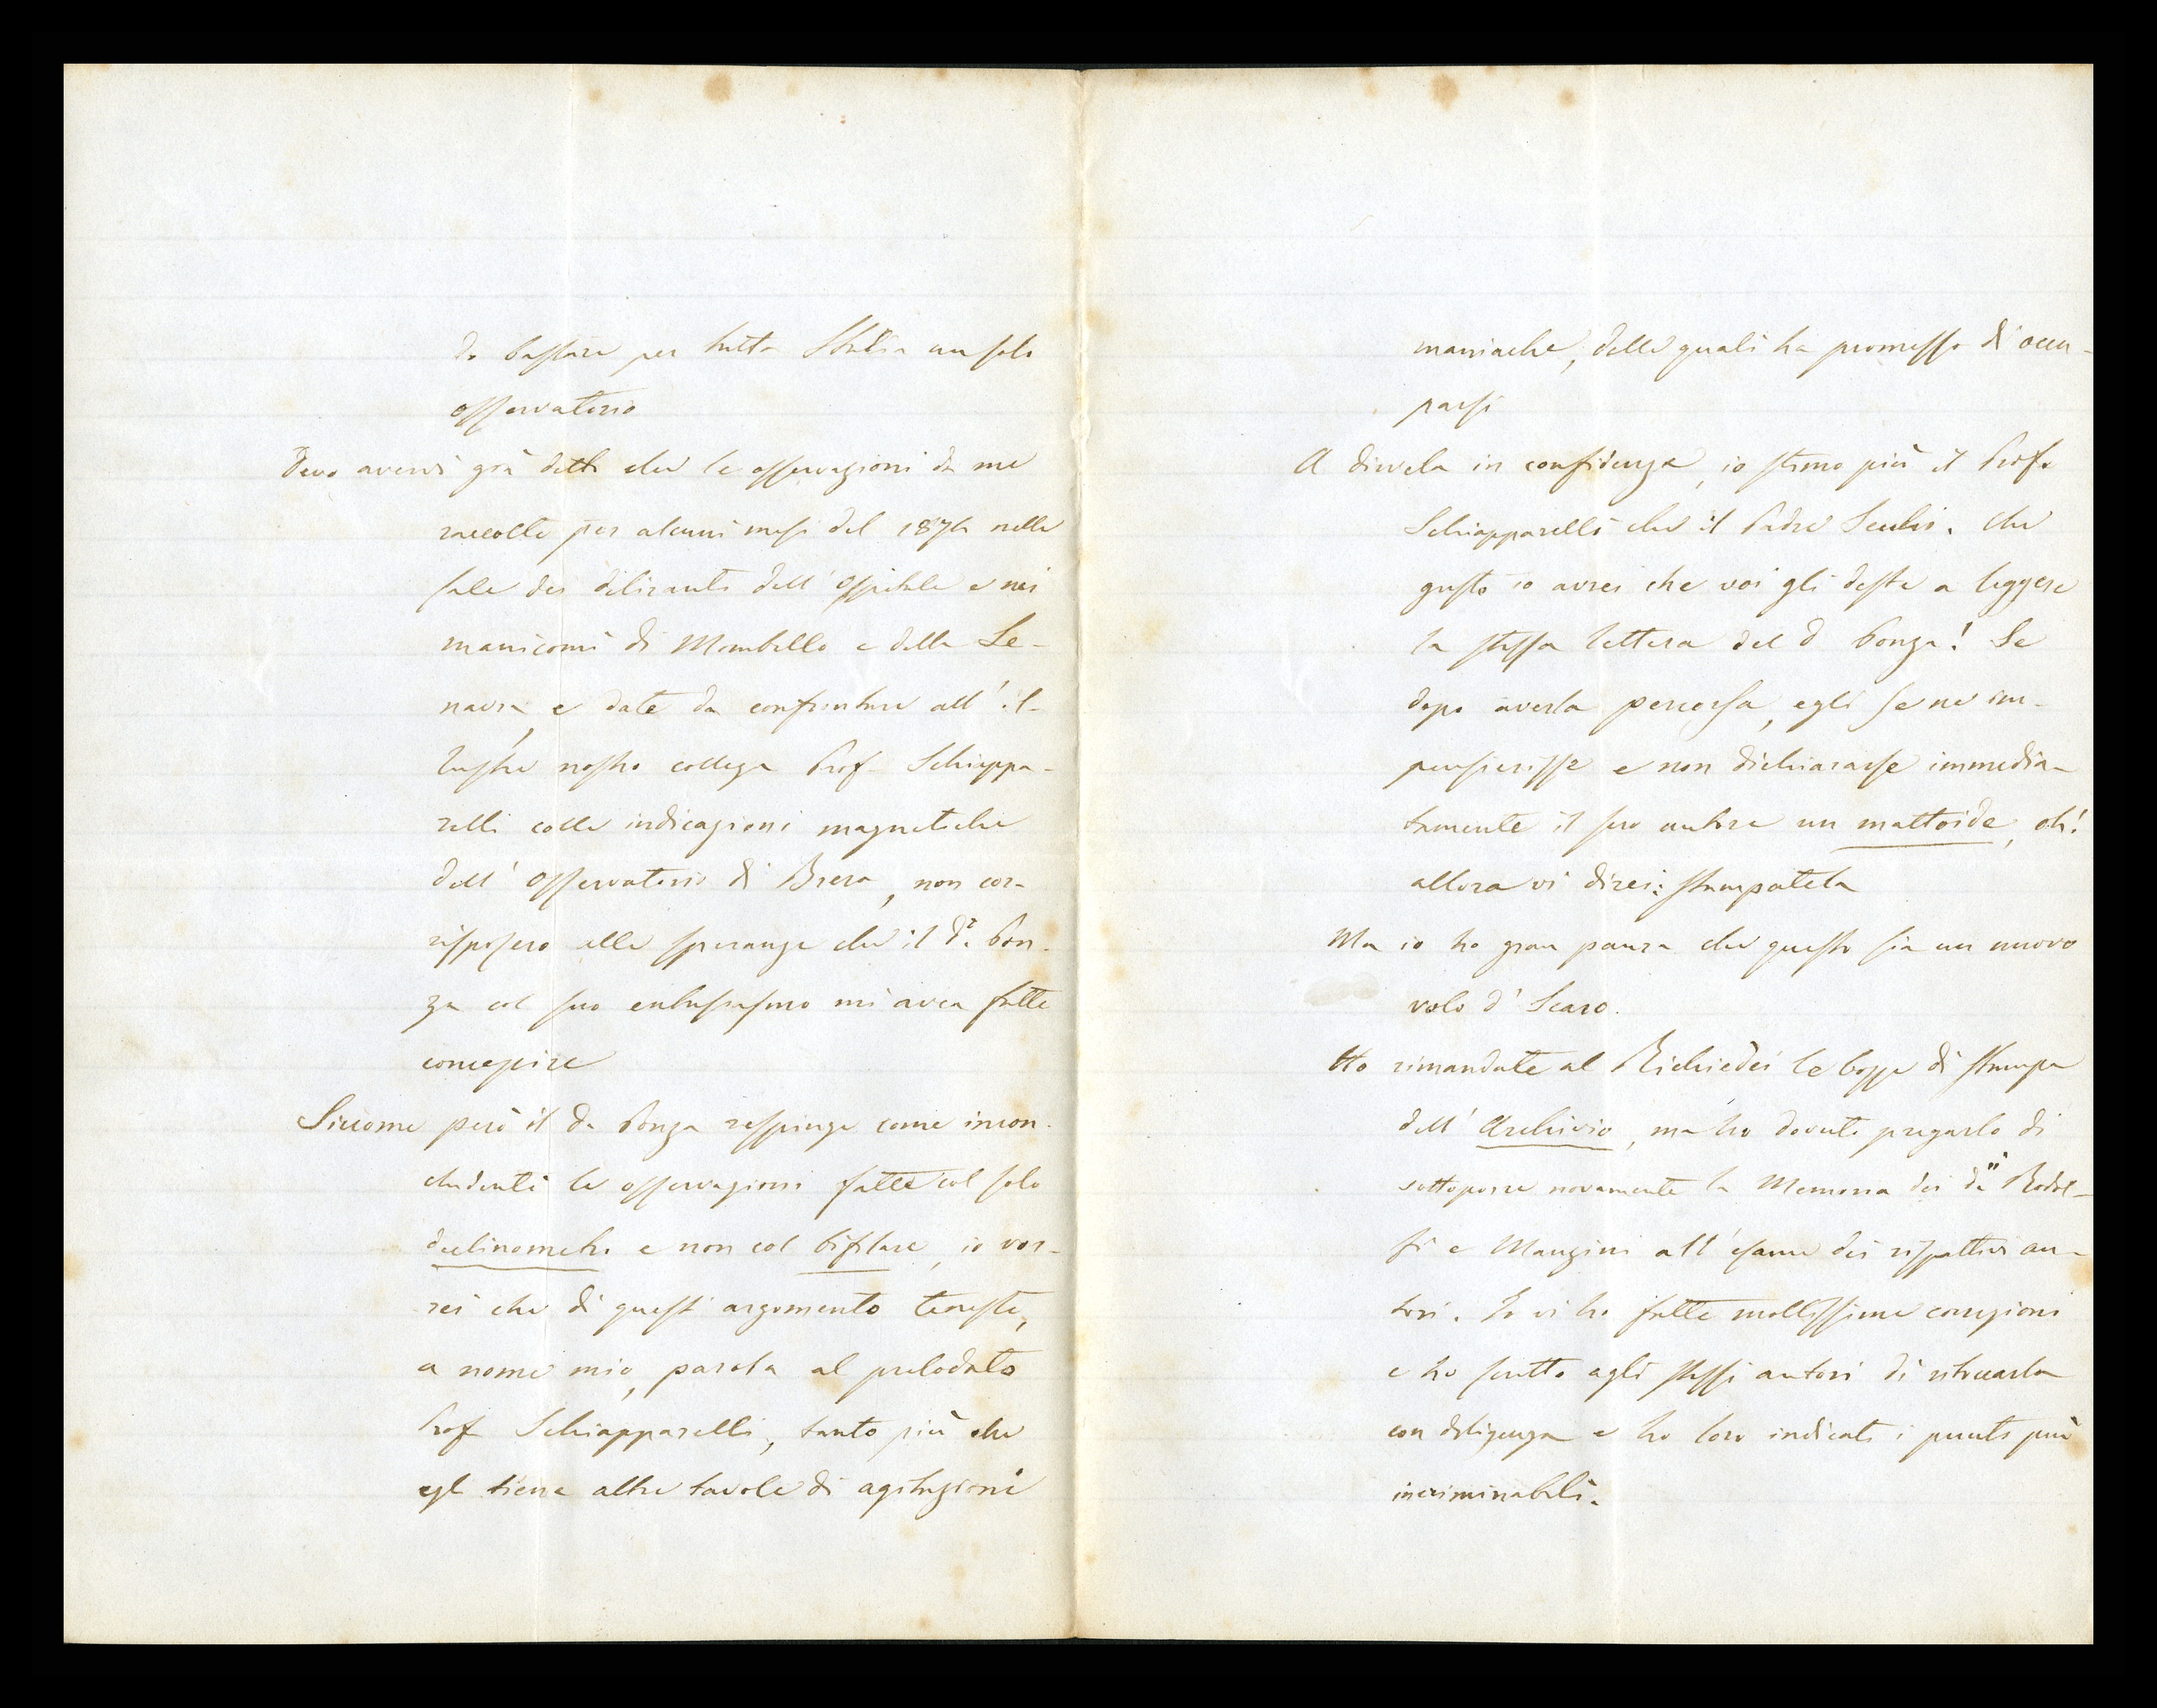 da bastare per tutta Italia un solo
osservatorio
Devo avervi già detto che le osservazioni da me
raccolte per alcuni mesi del 1874 nelle
sale dei deliranti dell' Ospitale e nei
manicomi di Mombello e della Se-
navra, e date da confrontare all' il-
lustre nostro collega Prof Schiappa-
relli colle indicazioni magnetiche
dell' Osservatorio di Brera, non cor-
risposero alle speranze che il Dr. Pon-
za col suo entusiasmo mi avea fatte
concepire
Siccome però il Dr Ponza respinge come incon-
cludenti le osservazioni fatte col solo
declinometro e non col bifilare, io vor-
rei che di questi argomento teneste,
a nome mio, parola al prelodato
Prof Schiapparelli, tanto più che
egli tiene altre tavole di agitazioni
maniache, delle quali ha promesso di occu-
parsi
A dirvela in confidenza, io stimo più il Prof.
Schiapparelli che il Padre Secchi. Che
gusto io avrei che voi gli deste a leggere
la stessa lettera del D Ponza! Se
dopo averla percorsa, egli se ne im-
pensierisse e non dichiarasse immedia-
tamente il suo autore un mattoide, oh!
allora vi direi: stampatela
Ma io ho gran paura che questo sia un nuovo
volo d' Icaro.
Ho rimandate al Richiedei le bozze di stampa
dell' Archivio, ma ho dovuto pregarlo di
sottoporre novamente la Memoria dei dri Rodol-
fi e Manzini all' esame dei rispettivi au-
tori. Io vi ho fatte moltissime correzioni
e ho scritto agli stessi autori di ritoccarla
con diligenza e ho loro indicati i punti più
incriminabili.